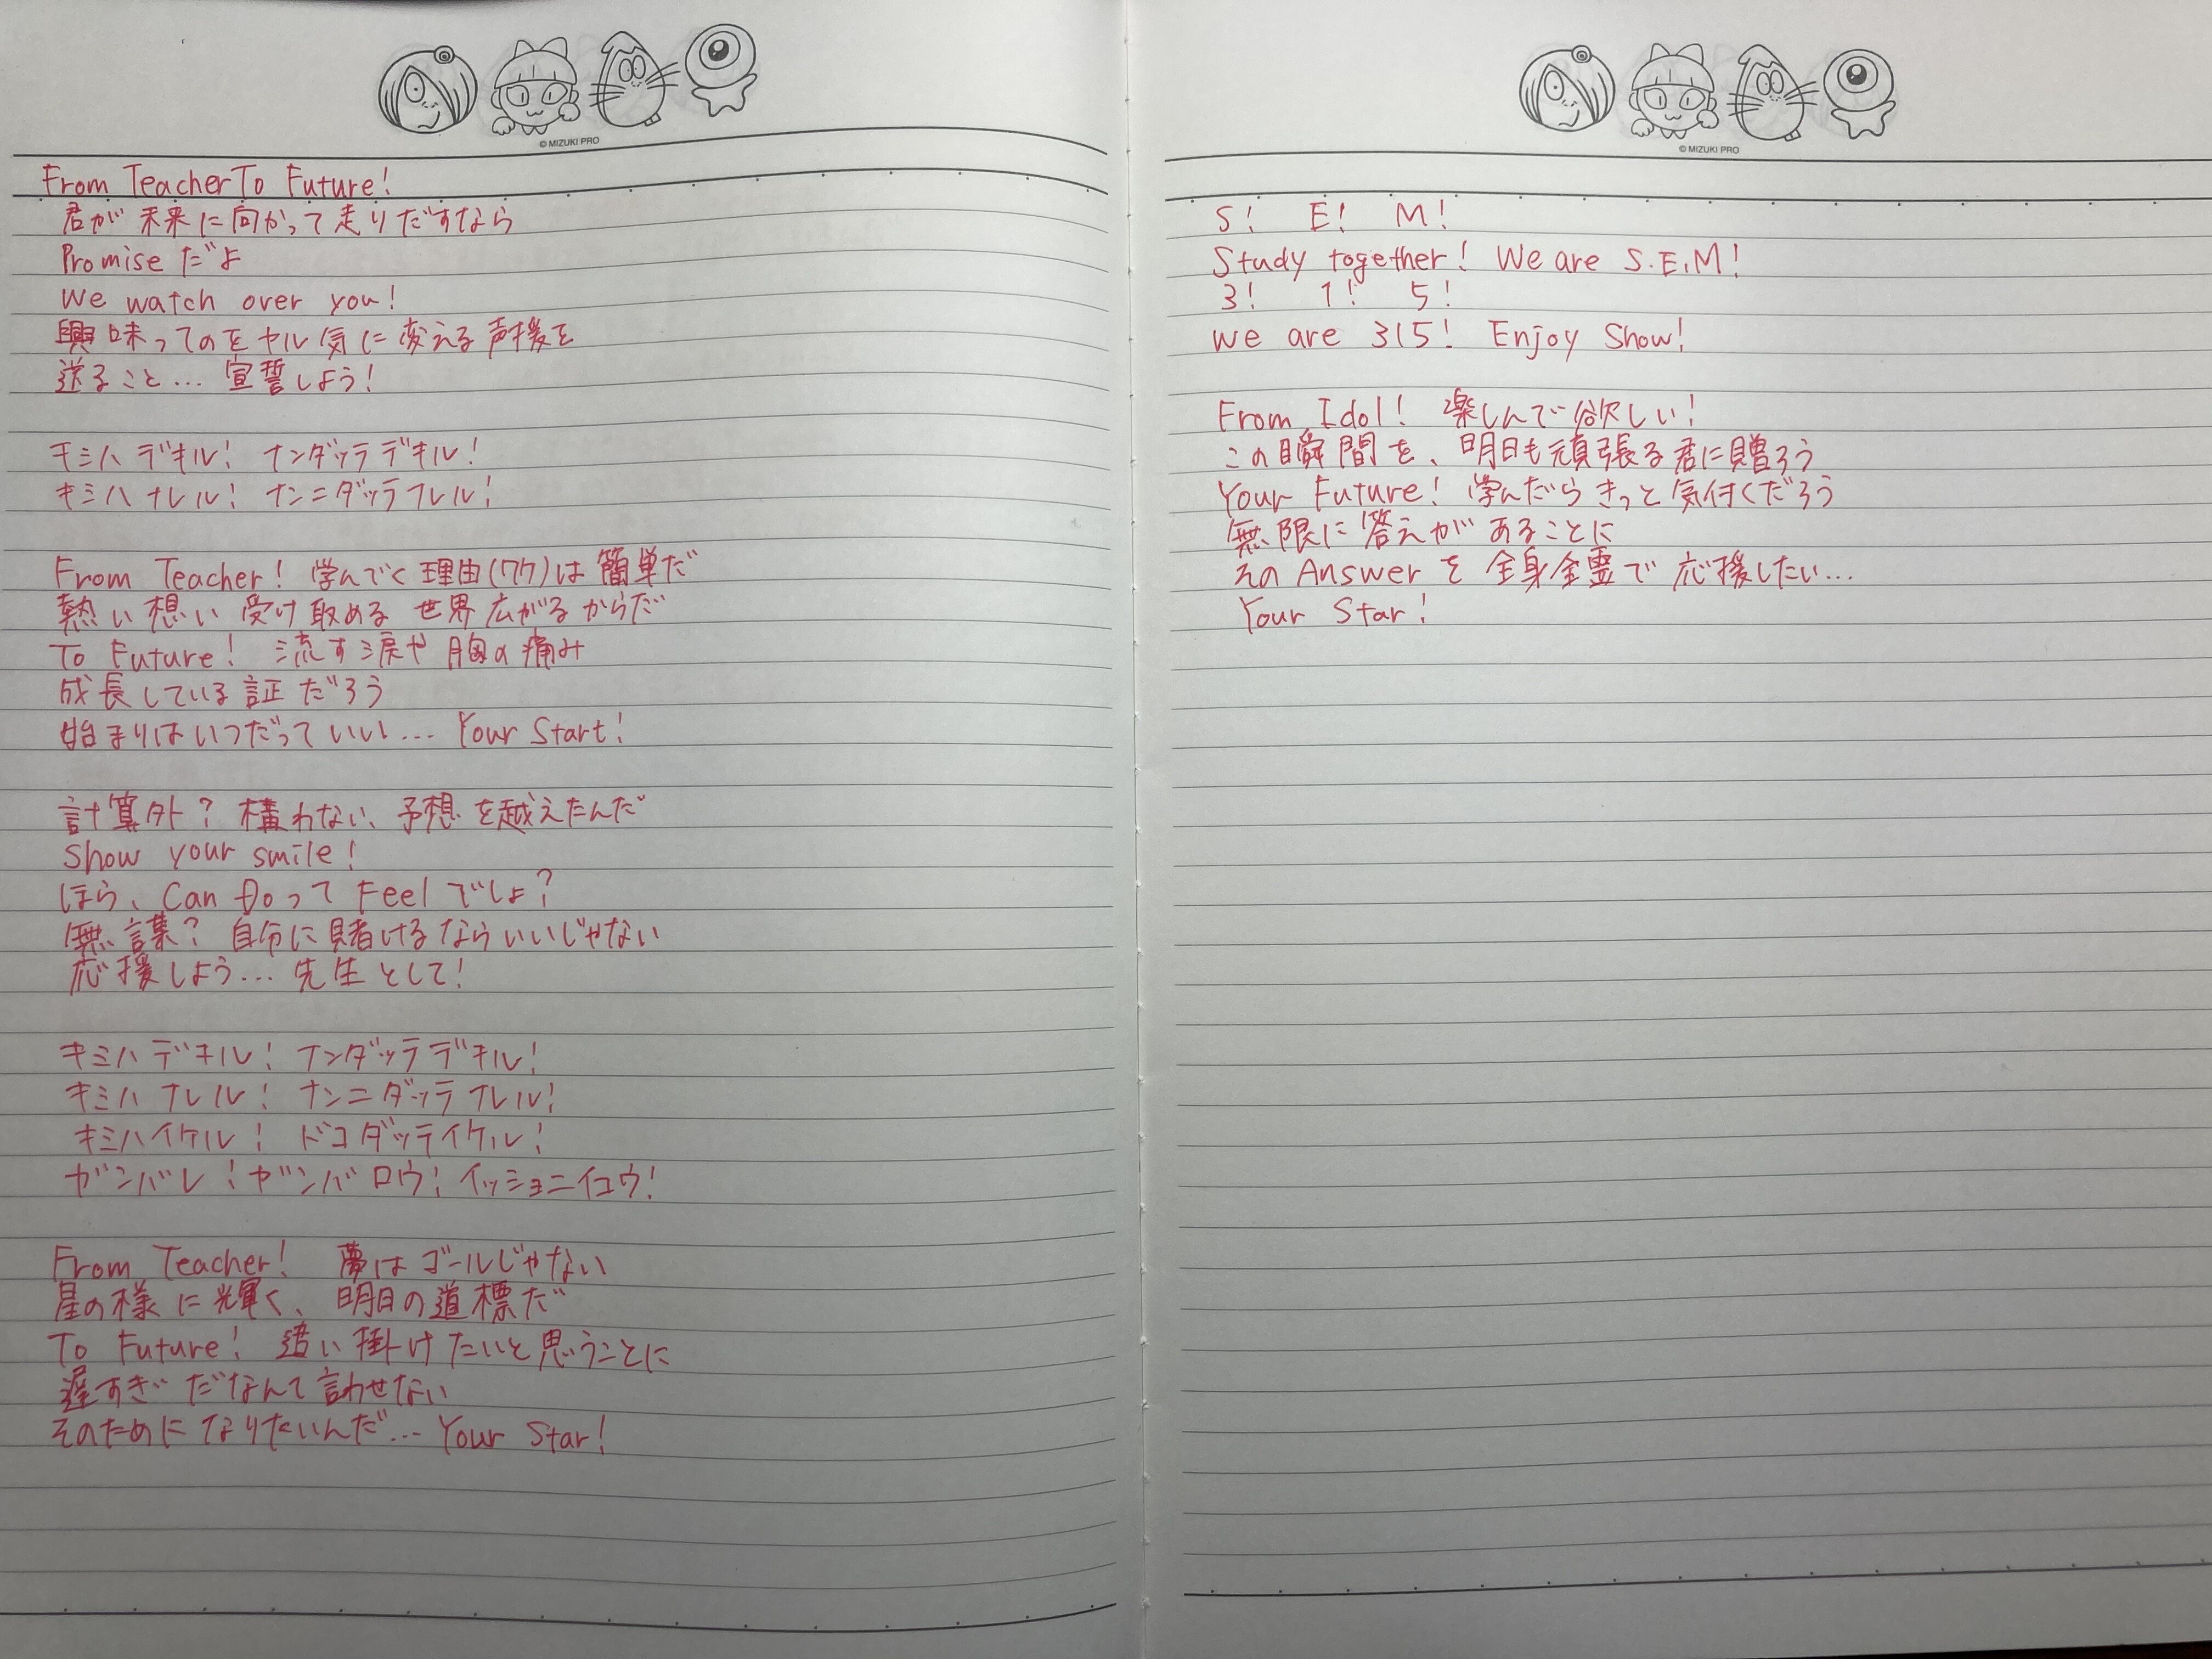 © MIZUKI PRO
From Teacher To Future!
君が未来に向かって走りだすなら
Promiseだよ
We watch over you!
興味ってのをヤル気に変える声援を
送ること… 宣誓しよう!
キミハデキル! ナンダッテデキル!
キミハナレル! ナンニダッテナレル!
From Teacher! 学んでく理由(ワケ)は簡単だ
熱い想い受け取める 世界広がるからだ
To Future! 流す涙や胸の痛み
成長している証だろう
始まりはいつだっていい… Your Start!
計算外? 構わない、予想を越えたんだ
Show your smile!
ほら、Can DoってFeelでしょ?
無謀? 自分に賭けるならいいじゃない
応援しよう… 先生として!
キミハデキル! ナンダッテデキル!
キミハナレル! ナンニダッテナレル!
キミハイケル! ドコダッテイケル!
ガンバレ! ガンバロウ! イッショニイコウ!
From Teacher! 夢はゴールじゃない
星の様に輝く、明日の道標だ
To Future! 追い掛けたいと思うことに
遅すぎだなんて言わせない
そのためになりたいんだ… Your Star!
© MIZUKI PRO
S! E! M!
Study together! We are S.E.M!
3! 1! 5!
We are 315! Enjoy Show!
From Idol! 楽しんで欲しい!
この瞬間を、明日も頑張る君に贈ろう
Your Future! 学んだらきっと気付くだろう
無限に答えがあることに
そのAnswerを全身全霊で応援したい…
Your Star!